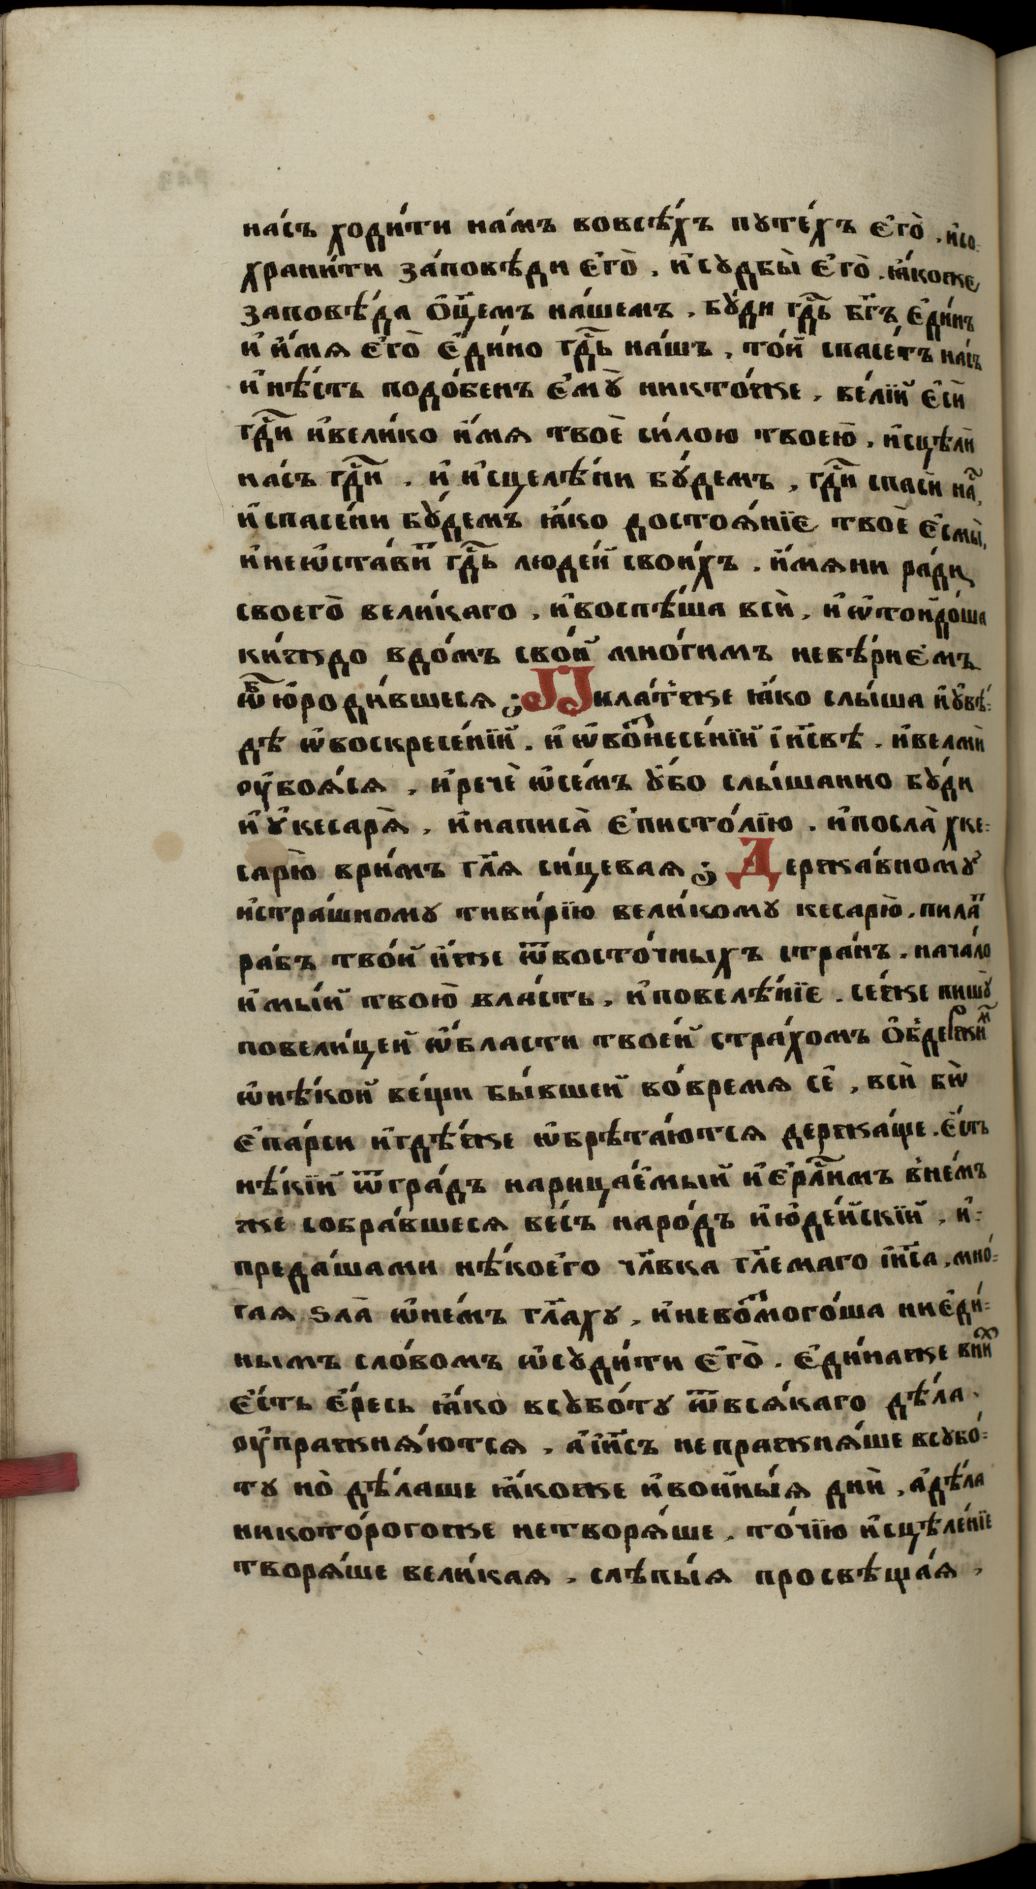 на́съ ходи́ти на́мъ вовсѣ́хъ путе́хъ є҆го̀ , и҆со-
храни́ти за́повѣди є҆го̀ , и҆судбы̀ є҆го̀ . ꙗ҆́коже
заповѣ́да ѻ҆ц҃е́мъ на́шемъ , бу́ди гдⷭ҇ь бг҃ъ є҆ди́нъ
и҆ и҆́мѧ є҆го̀ є҆ди́но гдⷭ҇ь на́шъ , то́й спасе́тъ на́съ
и҆нѣ́сть подо́бенъ є҆му̀ никто́же , ве́лїй є҆сѝ
гдⷭ҇и и҆вели́ко и҆́мѧ твоѐ си́лою твое́ю , и҆сцѣлѝ
на́съ гдⷭ҇и , и҆ и҆сцелѣ́ни бу́демъ , гдⷭ҇и спасѝ на́съ ,
и҆спасе́ни бу́демъ ꙗ҆́ко достоѧ́нїе твоѐ є҆смы̀ ,
и҆неѡ҆ста́ви гдⷭ҇ь люде́й свои́хъ . и҆́мѧни ра́ди
своего̀ вели́каго , и҆воспѣ́ша всѝ , и҆ ѿтоидо́ша
ки́ждо вдо́мъ сво́й мно́гимъ невѣ́риємъ
ѡ҆б̾ю҆роди́вшесѧ ; Пила́тъже ꙗ҆́ко слы́ша и҆ᲂу҆вѣ́-
дѣ ѡ҆воскресе́нїй . и҆ ѡ҆вознесе́нїй і҆и҃свѣ . и҆велмѝ
ᲂу҆боѧ́сѧ , и҆речѐ ѡ҆се́мъ у҆́бо слы́шанно бу́ди
и҆ у҆кесарѧ̀ , и҆написа̀ є҆писто́лїю . и҆посла̀ хке-
сарю̀ ври́мъ гл҃ѧ си́цеваѧ ; Держа́вному
и҆стра́шному тиви́рїю вели́кому кесарю̀ . пила́тъ
ра́бъ тво́й и҆́же ѿвосто́чныхъ стра́нъ . нача́ло
и҆мы́й твою̀ вла́сть , и҆повелѣ́нїе . се́же пишу̀
повели́цей ѡ҆́бласти твое́й стра́хомъ ѻ҆бдержи́мъ
ѡ҆нѣ́кой ве́щи бы́вшей во́времѧ сѐ , всѝ бѡ̀
є҆па́рси и҆гдѣ́же ѡ҆брѣта́ютсѧ держа́ще . є҆́сть
нѣ́кїй ѿгра́дъ нарица́е҆мый и҆є҆рⷭ҇ли́мъ в̾не́мъ
же собра́вшесѧ ве́съ наро́дъ и҆ю҆де́йскїй , и҆-
преда́шами нѣ́кое҆го чл҃вка гл҃емаго і҆и҃са , мно́-
гаѧ ѕла̀ ѡ҆не́мъ гл҃аху , и҆невозмого́ша ниє҆ди́-
нымъ сло́вомъ ѡ҆суди́ти є҆го̀ . є҆ди́наже вни́хъ
є҆́сть є҆́ресь ꙗ҆́ко всубо́ту ѿвсѧ́каго дѣ́ла .
ᲂу҆пражнѧ́ютсѧ , а҆і҆и҃съ непражнѧ́ше всубо́-
ту но̀ дѣ́лаше ꙗ҆́коже и҆вои҆ны́ѧ днѝ , а҆дѣ́ла
никото́рогоже нетворѧ́ше , то́чїю и҆сцѣле́нїе
творѧ́ше вели́каѧ , слѣпы́ѧ просвѣща́ѧ ,